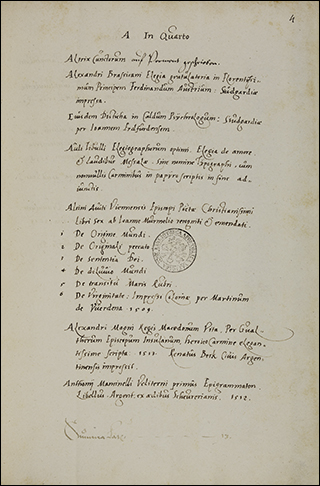 4
A In Quarto
Alexandri Brassicani Elegia gratulatoria in florentissi-
mum Principem Ferdinandum Austrium. Studgardiæ
impressa.
Eiusdem Disticha in Studgardiæ
per Ioannem
Auli tibulli Elegiographorum optimi. Elegia de amore
et laudibus Messalæ. sine nomine typographi. cum
nonnullis Carminibus in papiro scriptis in fine ad-
iunctis.
Alcimi Auiti Viennensis Episcopi Poetæ Christianissimi
Libri sex ab Ioanne Murmelio recogniti et emendati.
1 De Origine Mundi.
2 De Originali peccato
3 De sententia Dei.
4 De diluuio Mundi
5 De transitu Maris Rubri
6 De Virginitate: Impressi Coloniæ per Martinum
de Werdena 1509.
Alexandri Magni Regis Macedonum Vita. Per Gual-
therum Episcopum Insulanum, heroico Carmine elegan-
tissime scripta. 1513. Renatus Beck Ciuis Argen-
tinensis impressit.
Anthonij Mancinelli Veliterni primus Epigrammaton
Libellus. Argent: ex ædibus Schurerianis. 1512.